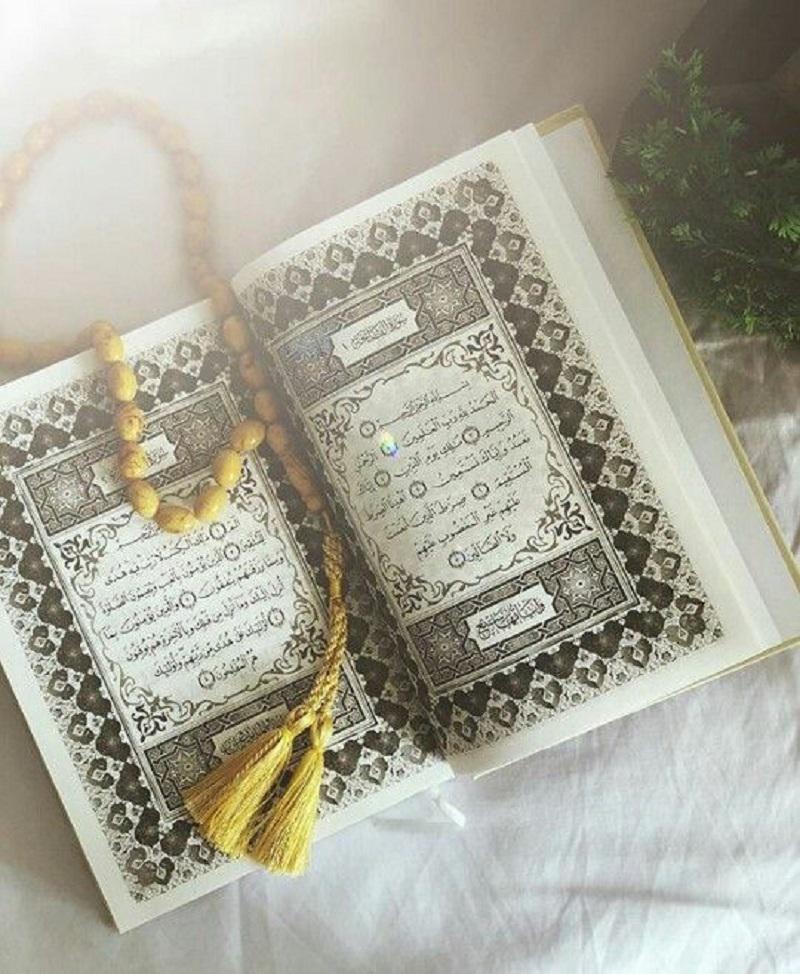 سُورَةُ الفَاتِحَةِ
بِسْمِ اللَّهِ الرَّحْمَٰنِ الرَّحِيمِ ١
الْحَمْدُ لِلَّهِ رَبِّ الْعَالَمِينَ ٢ الرَّحْمَٰنِ
الرَّحِيمِ ٣ مَالِكِ يَوْمِ الدِّينِ ٤ إِيَّاكَ
نَعْبُدُ وَإِيَّاكَ نَسْتَعِينُ ٥ اهْدِنَا الصِّرَاطَ
الْمُسْتَقِيمَ ٦ صِرَاطَ الَّذِينَ أَنْعَمْتَ
عَلَيْهِمْ غَيْرِ الْمَغْضُوبِ عَلَيْهِمْ
وَلَا الضَّالِّينَ ٧
الم ١ ذَٰلِكَ الْكِتَابُ لَا رَيْبَ فِيهِ هُدًى
لِلْمُتَّقِينَ ٢ الَّذِينَ يُؤْمِنُونَ بِالْغَيْبِ وَيُقِيمُونَ الصَّلَاةَ
وَمِمَّا رَزَقْنَاهُمْ يُنْفِقُونَ ٣ وَالَّذِينَ يُؤْمِنُونَ بِمَا
أُنْزِلَ إِلَيْكَ وَمَا أُنْزِلَ مِنْ قَبْلِكَ وَبِالْآخِرَةِ هُمْ يُوقِنُونَ ٤
أُولَٰئِكَ عَلَىٰ هُدًى مِنْ رَبِّهِمْ وَأُولَٰئِكَ
هُمُ الْمُفْلِحُونَ ٥